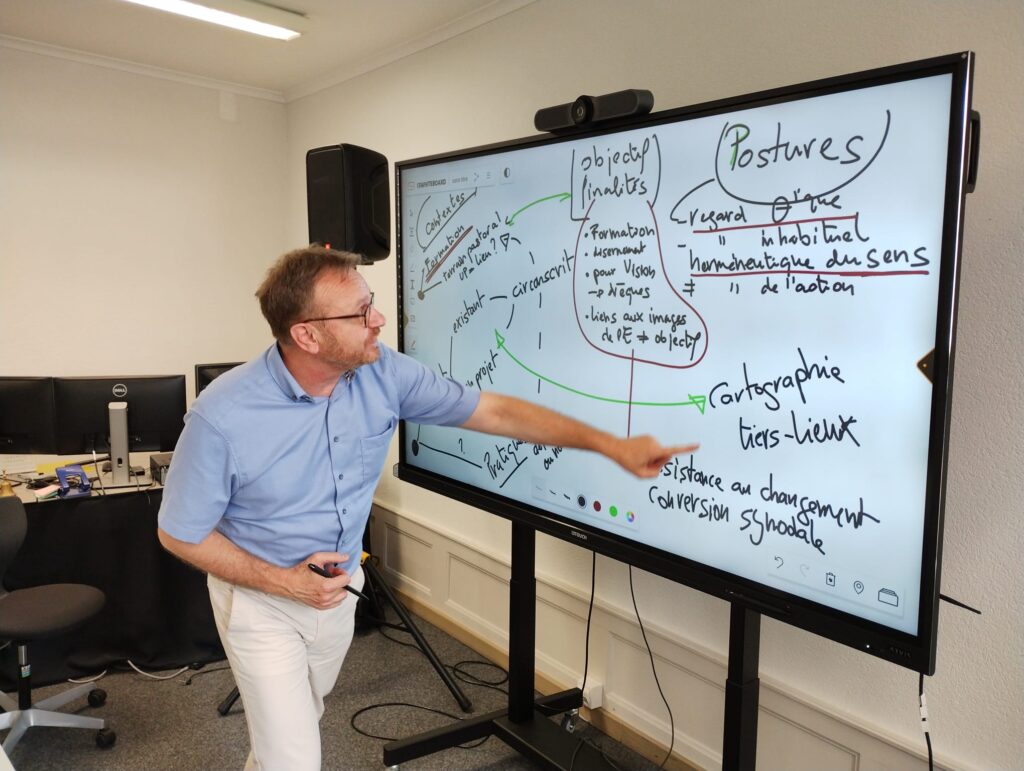 WHITEBOARD
Contextes
Formation
terrain pastoral
UP = lien ?
existant
circonscrit
projet
?
Pratique
objectif
finalités
• Formation
• discernement
• pour Vision
→ évêques
• liens aux images
de PE → objectif
Postures
- regard Θ ique
- " inhabituel
herméneutique du sens
≠ " de l'action
Cartographie
tiers-lieux
sistance au changement
conversion synodale
DELL
CTOUCH